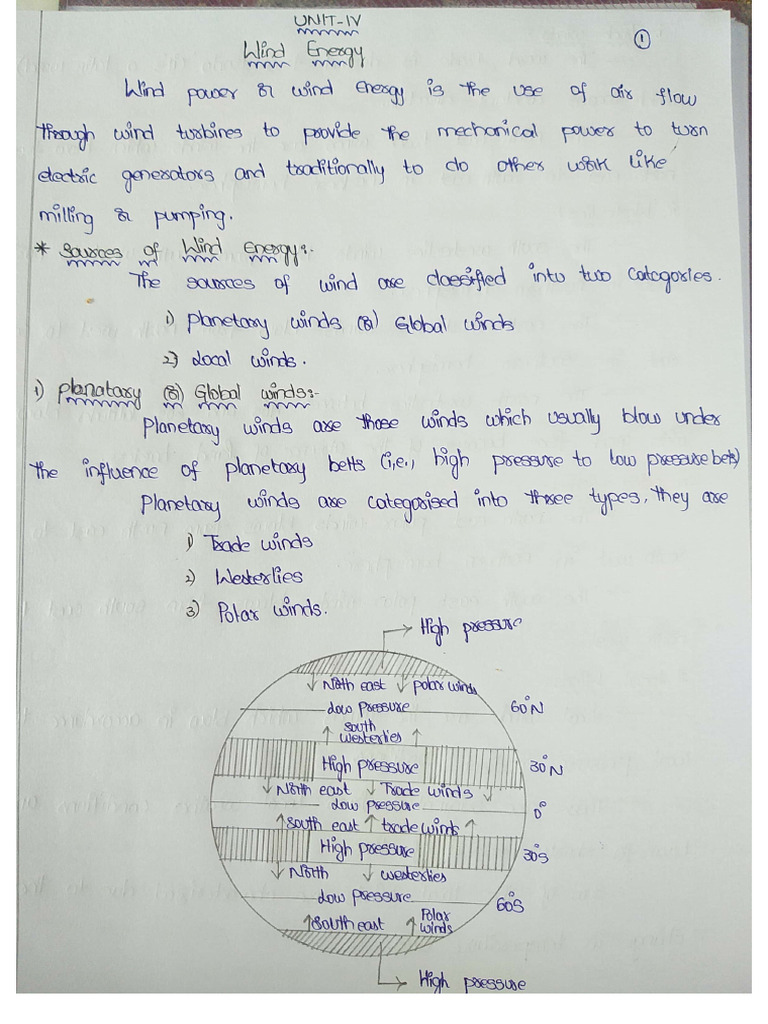 UNIT-IV
1
Wind Energy
Wind power or wind energy is the use of air flow
through wind turbines to provide the mechanical power to turn
electric generators and traditionally to do other work like
milling or pumping.
* Sources of Wind Energy:-
The sources of wind are classified into two categories.
1) planetary winds (or) Global winds
2) Local winds.
1) Planatary (or) Global winds:-
Planetary winds are those winds which usually blow under
the influence of planetary belts (i,e., high pressure to low pressure belts)
Planetary winds are categorised into three types, they are
1) Trade winds
2) Westerlies
3) Polar winds.
High pressure
North east polar winds
Low pressure 60°N
South
westerlies
High pressure 30°N
North east Trade winds
Low pressure 0°
South east trade winds
High pressure 30°S
North westerlies
Low pressure 60°S
South east Polar winds
High pressure